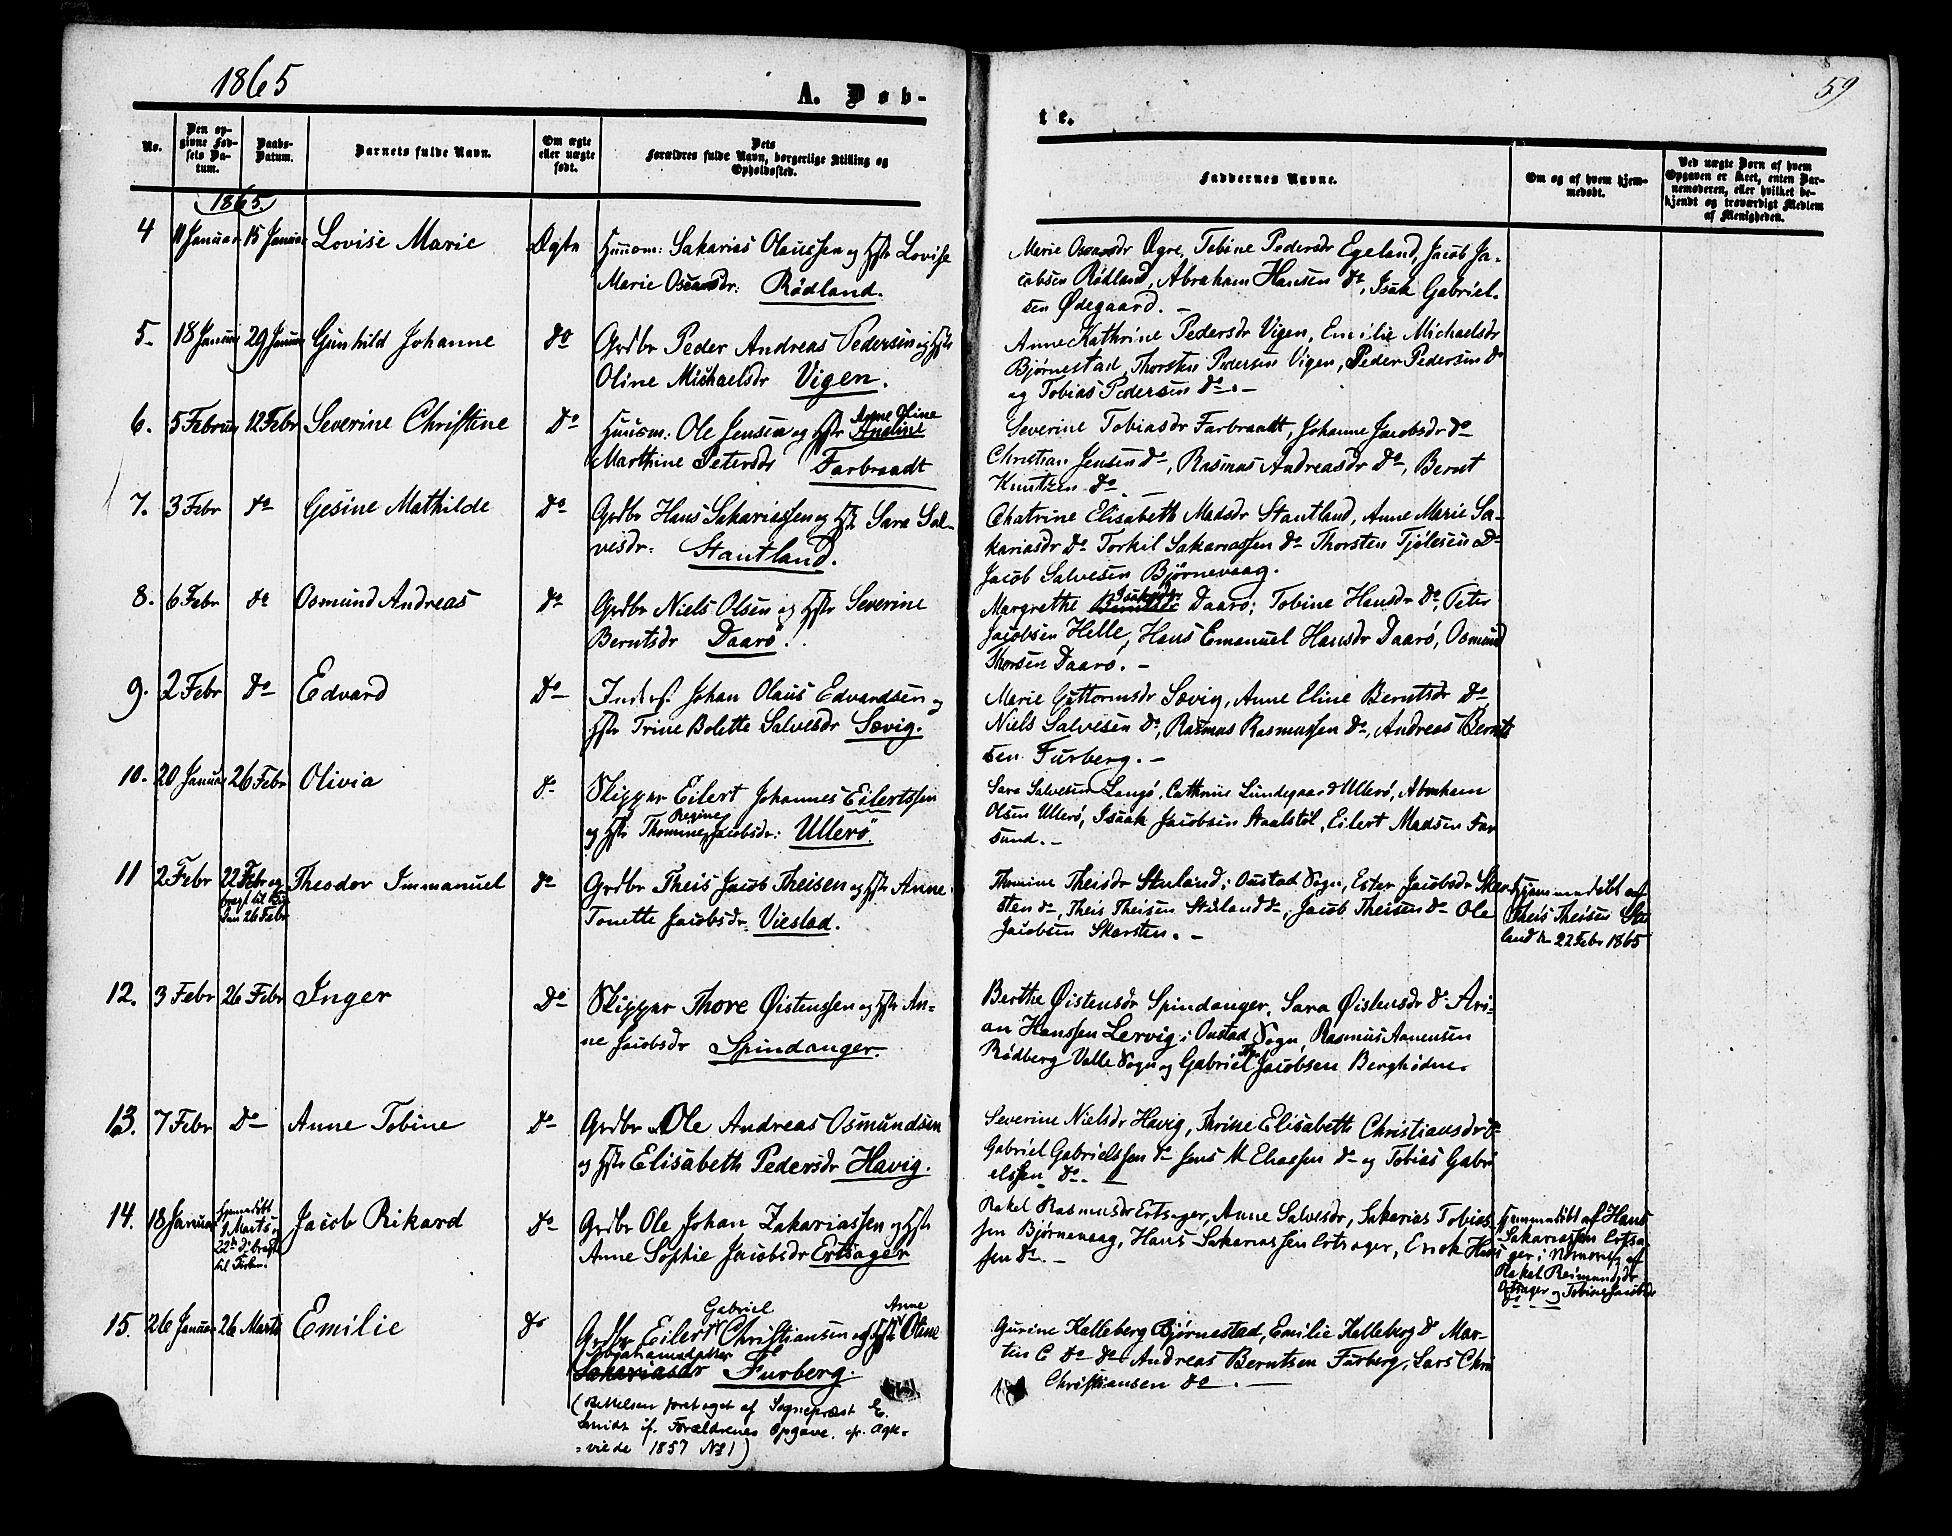 1865
A. Døb-
te.
59
No.
Den op-
givne Fød-
sels Da-
tum.
Daabs-
Datum.
Barnets fulde Navn.
Om ægte
eller uægte
født.
Dets
Forældres fulde Navn, borgerlige Stilling og
Opholdssted.
Faddernes Navne.
Om og af hvem hjem-
medøbt.
Ved uægte Børn af hvem
Opgaven er skeet, enten Bar-
nemoderen, eller hvilket be-
kjendt og troværdigt Medlem
af Menigheden.
1865.
4 11 Januar 15 Januar Lovise Marie Ægte Huusm: Sakarias Olaussen og Hstr Lovise
Marie Oscarsdr: Rødland.
Merie Oscarsdr Øgre, Tobine Pedersdr Egeland, Jacob Ja-
cobsen Rødland, Abraham Hansen do, Isak Gabriel-
sen Ødegaard. -
5 18 Januar 29 Januar Gunhild Johanne do Grdbr Peder Andreas Pedersen og Hstr
Oline Michaelsdr Vigen.
Anne Kathrine Pedersdr Vigen, Emilie Michaelsdr
Bjørnestad, Thorsten Pedersen Vigen, Peder Pedersen do
og Tobias Pedersen do. -
6. 5 Februar 12 Febr Severine Christine Do Huusm: Ole Jensen og Hstr Aneline
Anne Oline
Marthine Petersdr Farbraadt
Severine Tobiasdr Farbraadt, Johanne Jacobsdr do
Christian Jensen do, Rasmus Andreasdr do, Bernt
Knutzen do -
7. 3 Febr do Gesine Mathilde Do Grdbr Hans Sakariassen og Hstr Sara Sal-
vesdr: Stautland.
Chatrine Elisabeth Madsdr Stautland, Anne Marie Sa-
kariasdr do Torkil Sakariassen do Thorsten Tjølesen Do
Jacob Salvesen Bjørnevaag.
8. 6 Febr do Osmund Andreas do Grdbr Niels Olsen og Hstr Severine
Berntsdr Daarø.
Margrethe Daarø; Tobine Hansdr do, Peter
Jacobsen Helle, Hans Emanuel Hansdr Daarø, Osmund
Thorsen Daarø. -
9. 2 Febr do Edvard Do Inders. Johan Olaus Edvardsen og
Hstr Trine Bolette Salvesdr Sævig.
Marie Guttormsdr Sævig, Anne Eline Berntsdr do
Niels Salvesen do, Rasmus Rasmussen do, Andreas Bernt
sen Furberg. -
10. 20 Januar 26 Febr Olivia do Skipper Eilert Johannes Eilertssen
Regine
og Hstr Thomine Jacobsdr: Ullerø.
Sara Salvesen Langø, Cathrine Lundegaard Ullerø, Abraham
Olsen Ullerø, Isaak Jacobsen Staalstøl, Eilert Madsen Far
sund. -
11 2 Febr 22 Febr og
bragt til Kir
den 26 Febr
Theodor Immanuel do Grdbr Theis Jacob Theisen og Hstr Anne
Tonette Jacobsdr: Viestad.
Thomine Theisdr Stuland i Oustad Sogn, Ester Jacobsdr Skar-
sten do, Theis Theisen Stuland do, Jacob Theisen do Ole
Jacobsen Skarsten. -
Hjemmedøbt af
Theis Theisen Stu
land d. 22 Febr 1865
12. 3 Febr 26 Febr Inger Do Skipper Thore Øistenssen og Hstr An-
ne Jacobsdr Spindanger.
Berthe Øistensdr Spindanger, Sara Øistensdr do Ari-
an Hanssen Lervig i Oustad Sogn, Rasmus Aanensen
Rødberg Valle Sogn og Gabriel Jacobsen Berghødne.
13. 7 Febr Do Anne Tobine Do Grdbr Ole Andreas Osmundsen
og Hstr Elisabeth Pedersdr Havig.
Severine Nielsdr Havig, Thrine Elisabeth Christiansdr do
Gabriel Gabrielssen do Jens M Eliassen do og Tobias Gabri
elssen do.
14. 18 Januar Hjemmedøbt
9 Marts og
22de do bragt
til Kirken.
Jacob Rikard do Grdbr Ole Johan Zakariassen og Hstr
Anne Sophie Jacobsdr Ertsager
Rakel Rasmusdr Ertsager, Anne Salvesdr, Sakarias Tobias-
sen Bjørnevaag, Hans Sakariassen Ertsager, Enok Hans
sen do. -
Hjemmedøbt af Hans
Sakariassen Ertsa-
ger i Nærværelse af
Rakel Reimundsdr
Ertsager og Tobine Jacobsdr
do
15. 26 Januar 26 Marts Emilie do
Gabriel Anne
Grdbr Eilert Christiansen og Hstr Oline
Abrahamsdatter
Sakariasdr Furberg.
(Rettelsen foretaget af Sogneprest E.
Smidt if. Forældrenes Opgave. cfr. Ægte-
=viede 1857 No 1)
Gurine Kalleberg Bjørnestad, Emilie Kalleberg do Mar-
tin C do do Andreas Berntsen Furberg, Lars Chri
Christiansen do. -